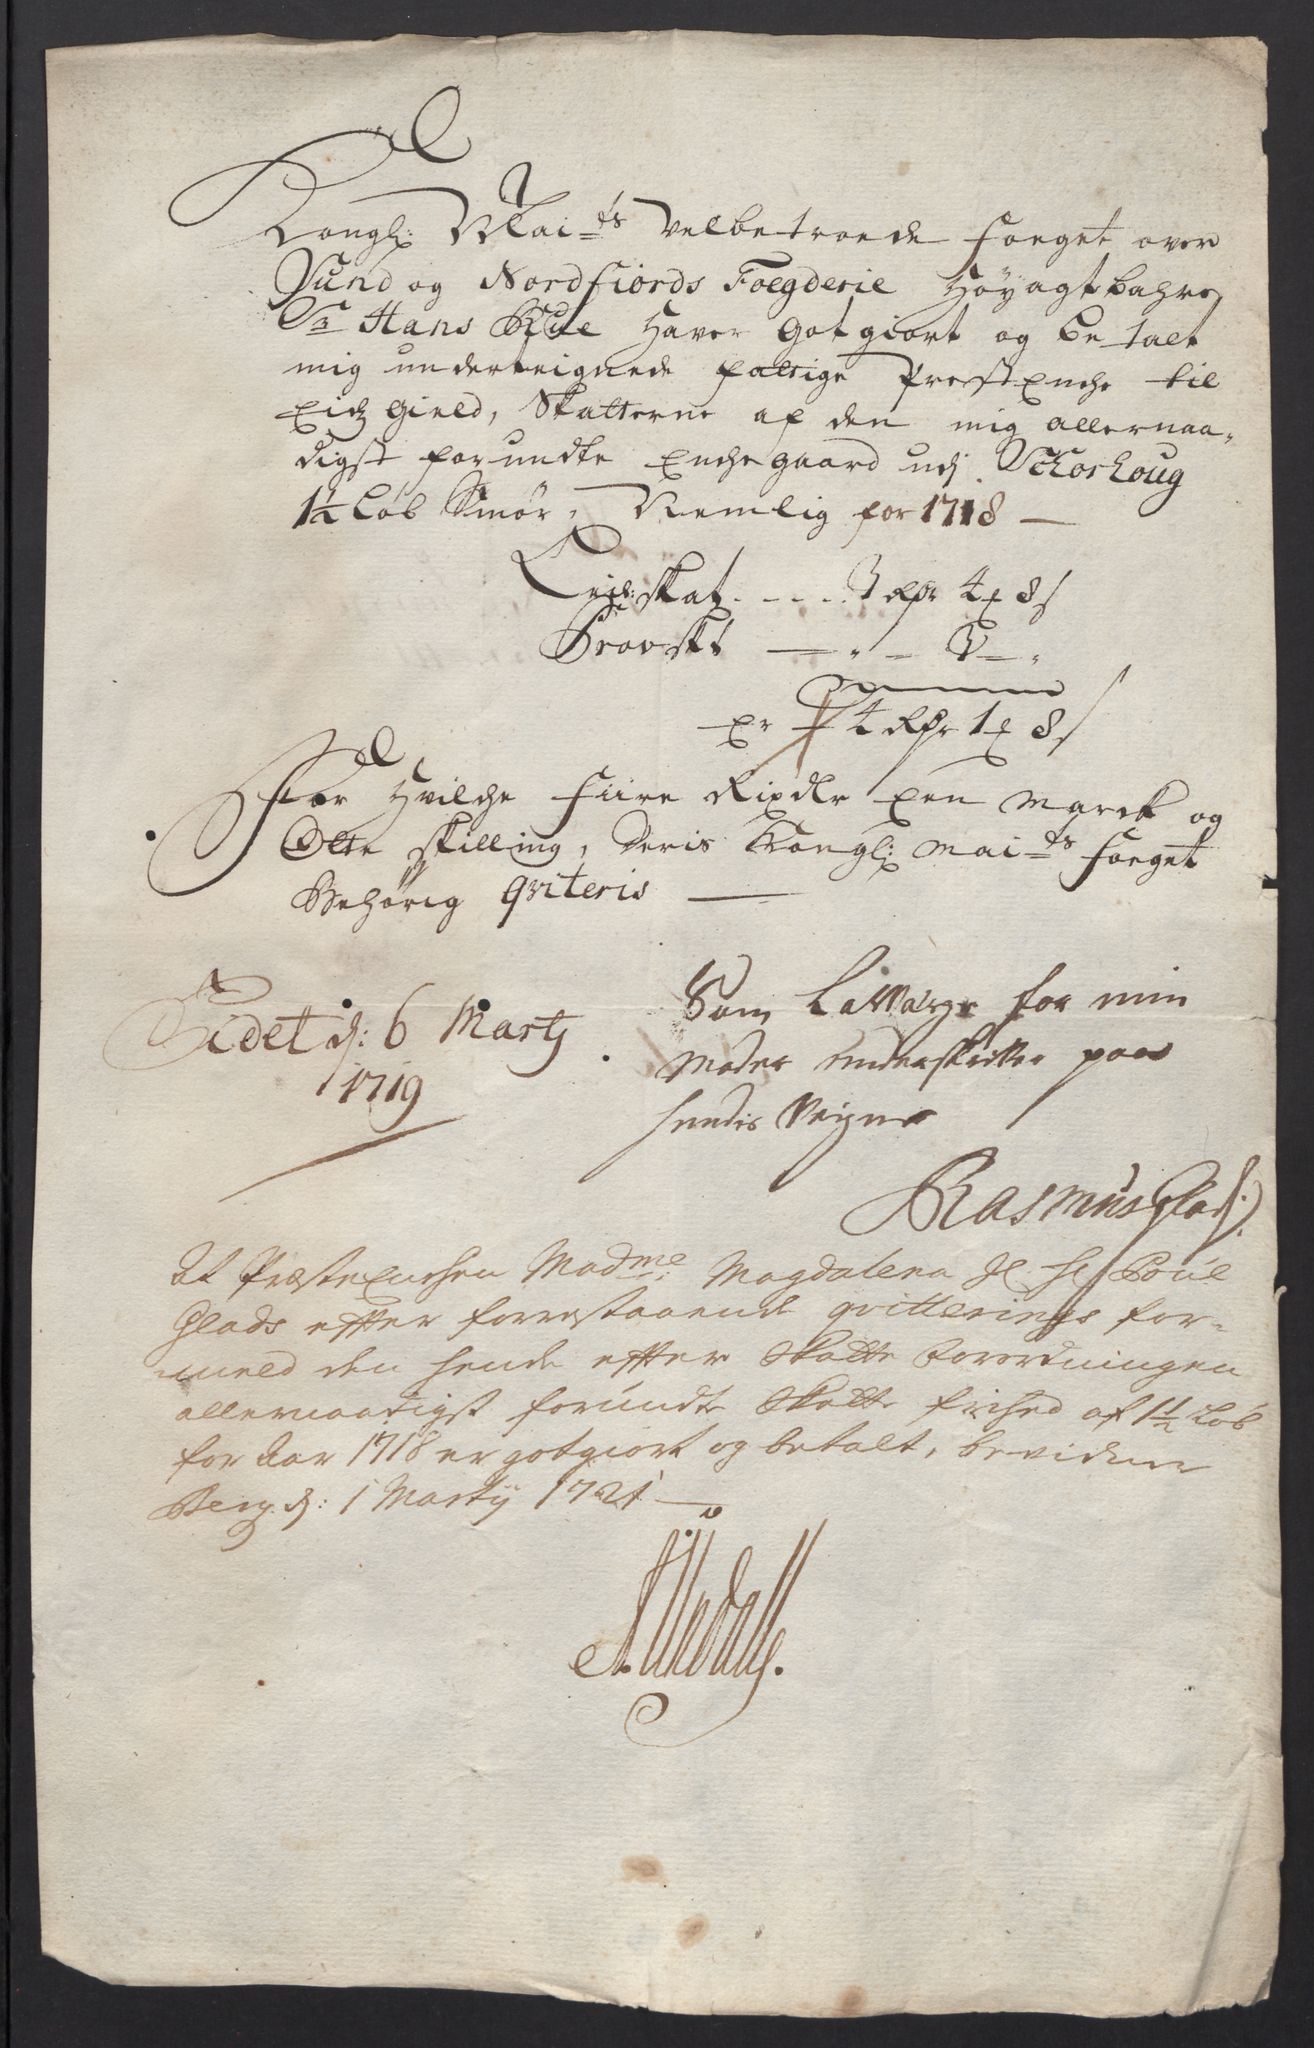 Kongl: Mai=ts Velbetroede Foeget over
Sund og Nordfiords Foegderie Høyagtbahre
Sr Hans Rue Haver Gotgiort og betalt
mig underteignede fattige PrestEnche til
Eidz Gield, Skatterne af den mig allernaa-
digst forundte Enchegaard udj Schorhoug
1½ Løb Smør, Nemlig for 1718 —
Leil: skat . . . . 3 Rdr 4 ʒ 8 s
Prov: skt — " — 3 — "
Er — 4 Rdr 1 ʒ 8 s
For Hvilche Fiire Rixdlr Een Marck og
Otte skilling, Deris Kongl: Mai=ts Foeget
Behørig Qviteris —
Eidet d: 6 Martj
1719
Som LauVærge for min
Moder underskriver paa
hendis Veigne
Rasmus Glad.
At PræsteEnchen Madme: Magdalena Sl: Hr Poul
Glads effter forrestaaende qvitterings for-
meld den hende effter Skatte Forordningen
allernaadigst forundte Skatte frihed af 1½ Løb
for Aar 1718 er gotgiort og betalt, bevidner
Berg. d: 1 Martij 1721 —